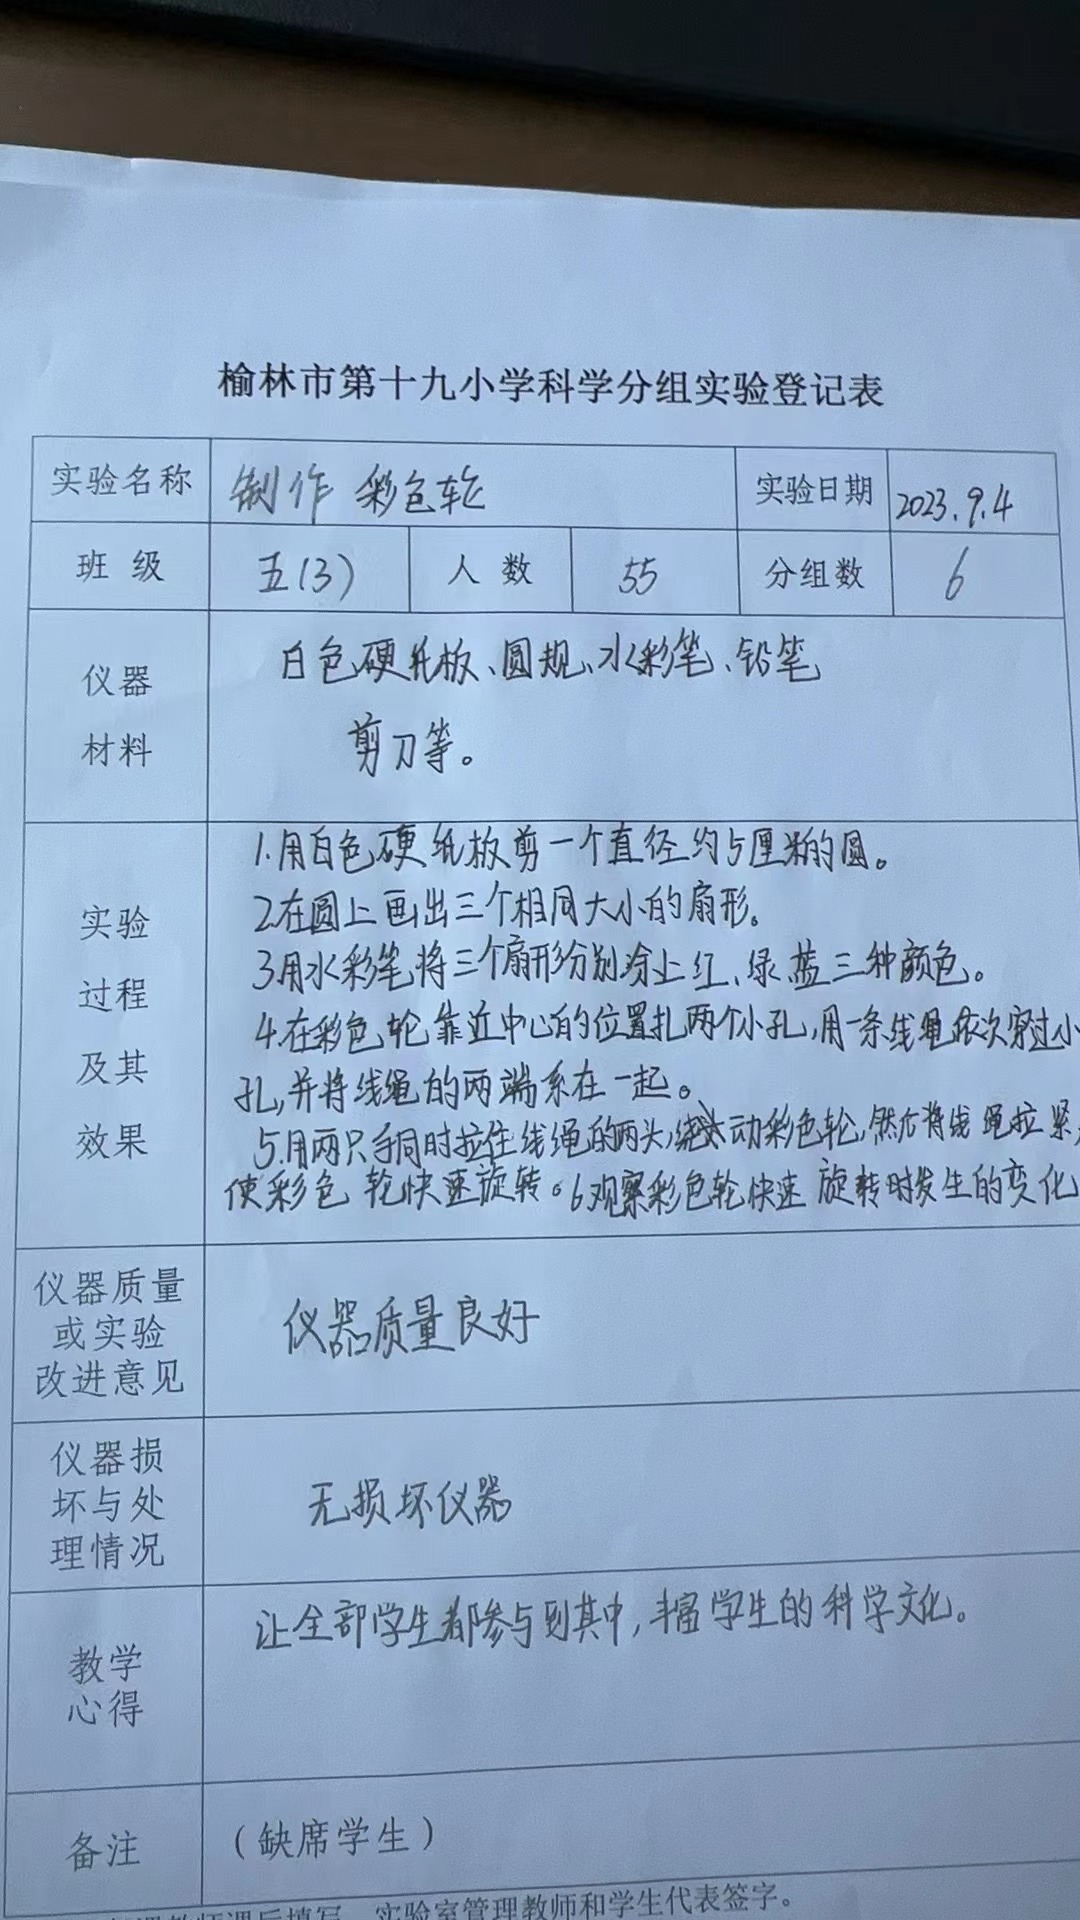 榆林市第十九小学科学分组实验登记表
实验名称 制作 彩色轮 实验日期 2023.9.4
班 级 五(3) 人 数 55 分组数 6
仪器
材料
白色硬纸板、圆规、水彩笔、铅笔
剪刀等。
实验
过程
及其
效果
1.用白色硬纸板剪一个直径约5厘米的圆。
2.在圆上画出三个相同大小的扇形。
3.用水彩笔将三个扇形分别涂上红、绿蓝三种颜色。
4.在彩色轮靠近中心的位置扎两个小孔,用一条线绳依次穿过小
孔,并将线绳的两端系在一起。
5.用两只手同时拉住线绳的两头,绕动彩色轮,然后将线绳拉紧
使彩色轮快速旋转。6.观察彩色轮快速旋转时发生的变化
仪器质量
或实验
改进意见
仪器质量良好
仪器损
坏与处
理情况
无损坏仪器
教学
心得
让全部学生都参与到其中,丰富学生的科学文化。
备注
(缺席学生)
课后填写,实验室管理教师和学生代表签字。